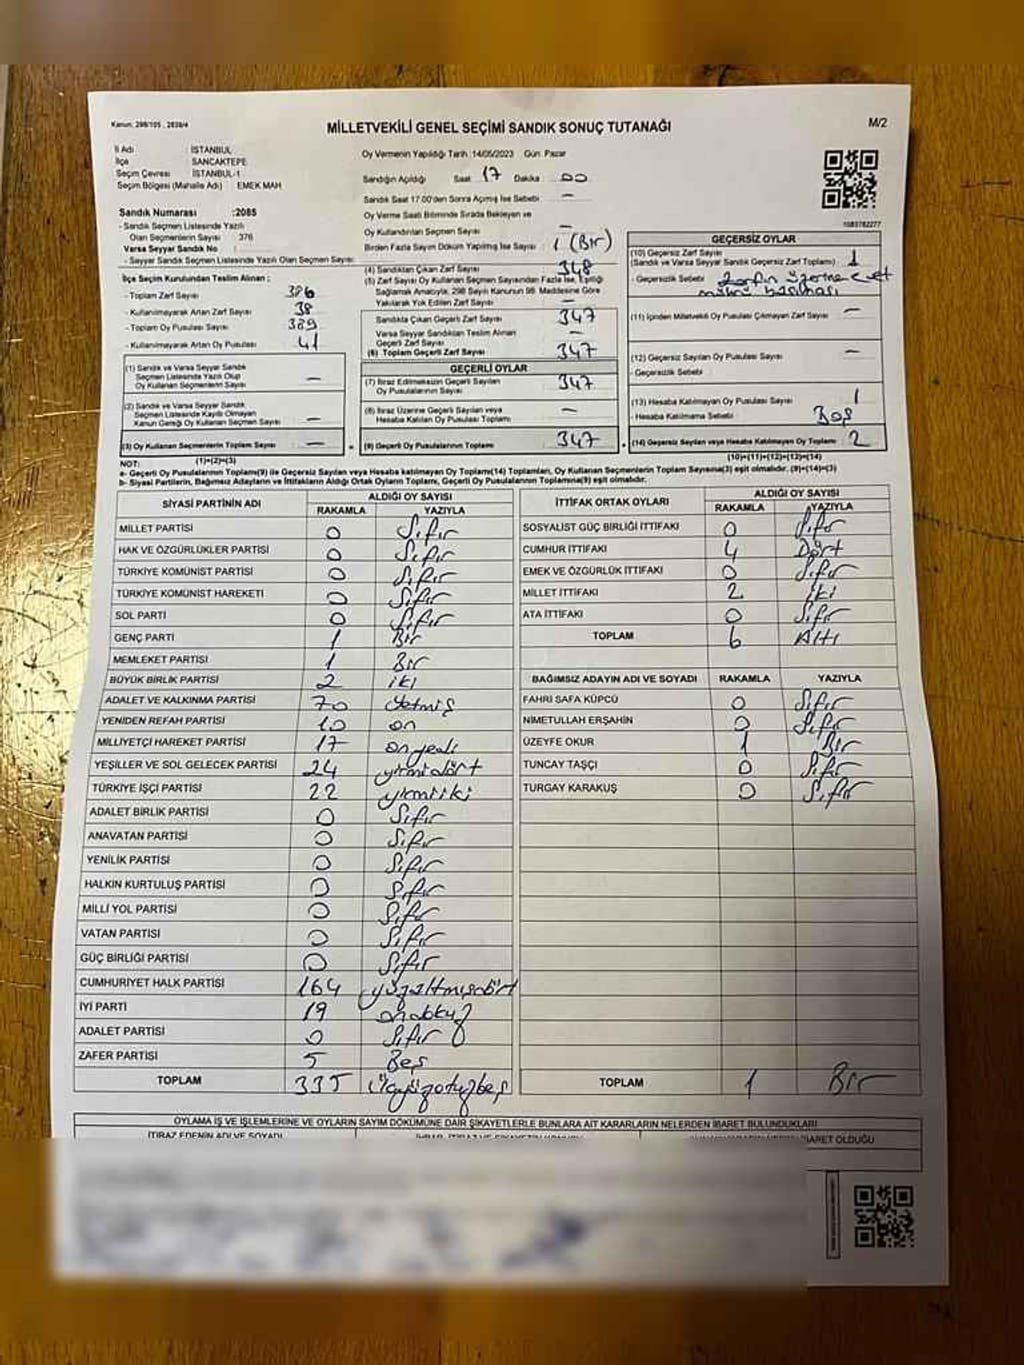 Kanun: 298/105 , 2839/4
MİLLETVEKİLİ GENEL SEÇİMİ SANDIK SONUÇ TUTANAĞI
M/2
İl Adı : İSTANBUL
İlçe SANCAKTEPE
Seçim Çevresi İSTANBUL-1
Seçim Bölgesi (Mahalle Adı) EMEK MAH
Oy Vermenin Yapıldığı Tarih :14/05/2023 Gün: Pazar
Sandığın Açıldığı Saat 17 Dakika 00
Sandık Saat 17.00'den Sonra Açılmış İse Sebebi : —
Oy Verme Saati Bitiminde Sırada Bekleyen ve
Oy Kullandırılan Seçmen Sayısı : —
Birden Fazla Sayım Döküm Yapılmış İse Sayısı : 1 (Bir)
1083782277
Sandık Numarası :2085
- Sandık Seçmen Listesinde Yazılı
Olan Seçmenlerin Sayısı : 376
Varsa Seyyar Sandık No :
- Seyyar Sandık Seçmen Listesinde Yazılı Olan Seçmen Sayısı:
İlçe Seçim Kurulundan Teslim Alınan ;
- Toplam Zarf Sayısı 386
- Kullanılmayarak Artan Zarf Sayısı 38
- Toplam Oy Pusulası Sayısı 389
- Kullanılmayarak Artan Oy Pusulası 41
(1) Sandık ve Varsa Seyyar Sandık
Seçmen Listesinde Yazılı Olup
Oy Kullanan Seçmenlerin Sayısı —
(2) Sandık ve Varsa Seyyar Sandık
Seçmen Listesinde Kayıtlı Olmayan
Kanun Gereği Oy Kullanan Seçmen Sayısı —
(3) Oy Kullanan Seçmenlerin Toplam Sayısı —
(1)+(2)=(3)
(4) Sandıktan Çıkan Zarf Sayısı 348
(5) Zarf Sayısı Oy Kullanan Seçmen Sayısından Fazla İse, Eşitliği
Sağlamak Amacıyla, 298 Sayılı Kanunun 98. Maddesine Göre
Yakılarak Yok Edilen Zarf Sayısı —
Sandıkta Çıkan Geçerli Zarf Sayısı 347
Varsa Seyyar Sandıktan Teslim Alınan
Geçerli Zarf Sayısı —
(6) Toplam Geçerli Zarf Sayısı 347
GEÇERLİ OYLAR
(7) İtiraz Edilmeksizin Geçerli Sayılan
Oy Pusulalarının Sayısı 347
(8) İtiraz Üzerine Geçerli Sayılan veya
Hesaba Katılan Oy Pusulaları Toplamı —
(9) Geçerli Oy Pusulalarının Toplamı 347
GEÇERSİZ OYLAR
(10) Geçersiz Zarf Sayısı
(Sandık ve Varsa Seyyar Sandık Geçersiz Zarf Toplamı) 1
- Geçersizlik Sebebi : Zarfın üzerine evet
mührü basılması
(11) İçinden Milletvekili Oy Pusulası Çıkmayan Zarf Sayısı —
(12) Geçersiz Sayılan Oy Pusulası Sayısı —
- Geçersizlik Sebebi
(13) Hesaba Katılmayan Oy Pusulası Sayısı 1
- Hesaba Katılmama Sebebi Boş
(14) Geçersiz Sayılan veya Hesaba Katılmayan Oy Toplamı 2
(10)+(11)+(12)+(13)=(14)
NOT:
a- Geçerli Oy Pusulalarının Toplamı(9) ile Geçersiz Sayılan veya Hesaba katılmayan Oy Toplamı(14) Toplamları, Oy Kullanan Seçmenlerin Toplam Sayısına(3) eşit olmalıdır. (9)+(14)=(3)
b- Siyasi Partilerin, Bağımsız Adayların ve İttifakların Aldığı Ortak Oyların Toplamı, Geçerli Oy Pusulalarının Toplamına(9) eşit olmalıdır.
SİYASİ PARTİNİN ADI ALDIĞI OY SAYISI
RAKAMLA YAZIYLA
MİLLET PARTİSİ 0 Sıfır
HAK VE ÖZGÜRLÜKLER PARTİSİ 0 Sıfır
TÜRKİYE KOMÜNİST PARTİSİ 0 Sıfır
TÜRKİYE KOMÜNİST HAREKETİ 0 Sıfır
SOL PARTİ 0 Sıfır
GENÇ PARTİ 1 Bir
MEMLEKET PARTİSİ 1 Bir
BÜYÜK BİRLİK PARTİSİ 2 iki
ADALET VE KALKINMA PARTİSİ 70 yetmiş
YENİDEN REFAH PARTİSİ 10 on
MİLLİYETÇİ HAREKET PARTİSİ 17 onyedi
YEŞİLLER VE SOL GELECEK PARTİSİ 24 yirmidört
TÜRKİYE İŞÇİ PARTİSİ 22 yirmiiki
ADALET BİRLİK PARTİSİ 0 Sıfır
ANAVATAN PARTİSİ 0 Sıfır
YENİLİK PARTİSİ 0 Sıfır
HALKIN KURTULUŞ PARTİSİ 0 Sıfır
MİLLİ YOL PARTİSİ 0 Sıfır
VATAN PARTİSİ 0 Sıfır
GÜÇ BİRLİĞİ PARTİSİ 0 Sıfır
CUMHURİYET HALK PARTİSİ 164 yüzaltmışdört
İYİ PARTİ 19 ondokuz
ADALET PARTİSİ 0 Sıfır
ZAFER PARTİSİ 5 Beş
TOPLAM 335 Üçyüzotuzbeş
İTTİFAK ORTAK OYLARI ALDIĞI OY SAYISI
RAKAMLA YAZIYLA
SOSYALİST GÜÇ BİRLİĞİ İTTİFAKI 0 Sıfır
CUMHUR İTTİFAKI 4 Dört
EMEK VE ÖZGÜRLÜK İTTİFAKI 0 Sıfır
MİLLET İTTİFAKI 2 iki
ATA İTTİFAKI 0 Sıfır
TOPLAM 6 Altı
BAĞIMSIZ ADAYIN ADI VE SOYADI RAKAMLA YAZIYLA
FAHRİ SAFA KÜPCÜ 0 Sıfır
NİMETULLAH ERŞAHİN 0 Sıfır
ÜZEYFE OKUR 1 Bir
TUNCAY TAŞÇI 0 Sıfır
TURGAY KARAKUŞ 0 Sıfır
TOPLAM 1 Bir
OYLAMA İŞ VE İŞLEMLERİNE VE OYLARIN SAYIM DÖKÜMÜNE DAİR ŞİKAYETLERLE BUNLARA AİT KARARLARIN NELERDEN İBARET BULUNDUKLARI
İTİRAZ EDENİN ADI VE SOYADI
İBARET OLDUĞU